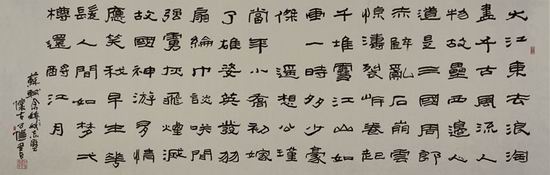 大江東去浪淘
盡千古風流人
物故壘西邊人
道是三國周郎
赤壁亂石崩雲
驚濤裂岸卷起
千堆雪江山如
畫一時多少豪
傑遙想公瑾
當年小喬初嫁
了雄姿英發羽
扇綸巾談笑間
強虜灰飛煙滅
故國神游多情
應笑我早生華
髮人間如夢弌
樽還酹江月
蘇軾念奴嬌赤壁
懷古 書